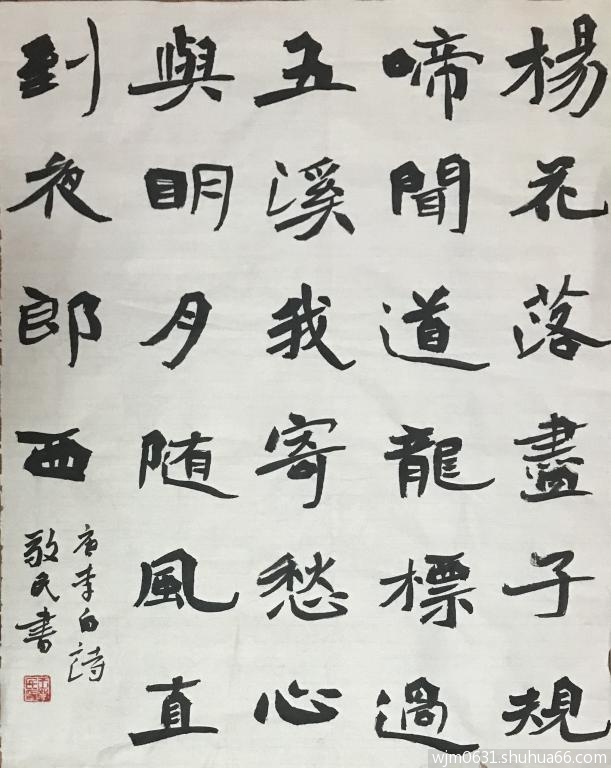 楊花落盡子規
啼聞道龍標過
五溪我寄愁心
與明月随風直
到夜郎西
唐李白詩
敬民書
wjm0631.shuhua66.com